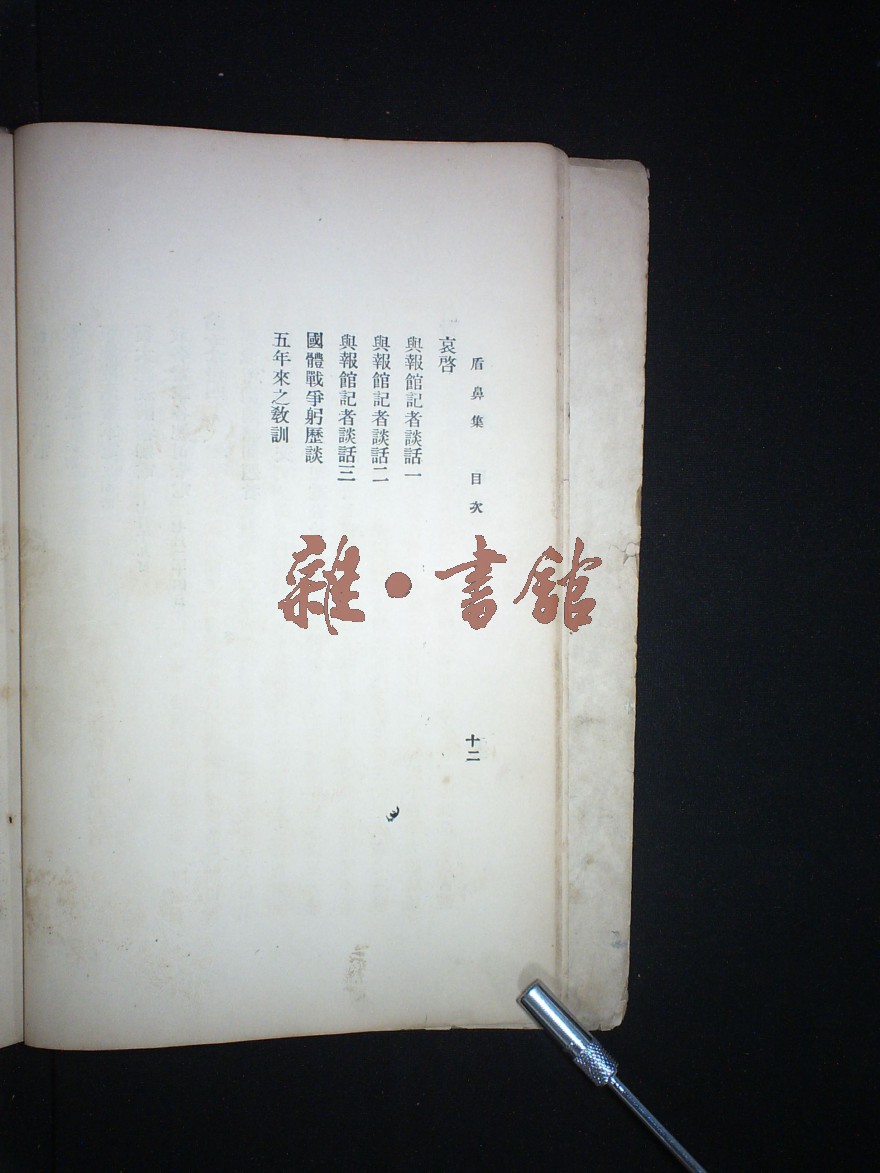 盾鼻集 目次 十二
哀啓
與報館記者談話一
與報館記者談話二
與報館記者談話三
國體戰爭躬歷談
五年來之敎訓
雜·書館